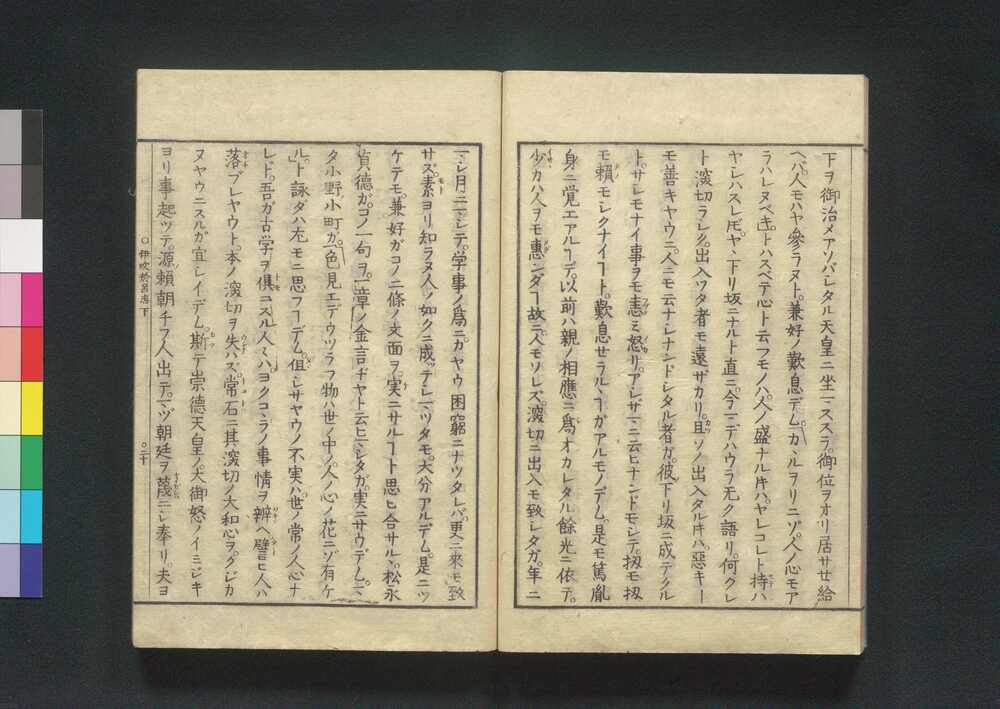 下ヲ御治メアソバレタル天皇ニ坐マススラ。御位ヲオリ居サセ給
ヘバ。人モハヤ參ラヌト。兼好ノ歎息デム。カヽルヲリニゾ。人ノ心モア
ラハレヌベキ。トハスベテ心ト云フモノハ。人ノ盛ナル時ハ。ヤレコレト持ハ
ヤレハスレ𪜈。ヤヽ下リ坂ニナルト直ニ。今マデハウラ无ク語リ。何クレ
ト深切ラレク。出入シタ者モ遠ザカリ。且ソノ出入タル時ハ。惡キヿ
モ善キヤウニ。人ニモ云ナレナンドレタル者ガ。彼下リ坂ニ成テクル
ト。サレモナイ事ヲモ恚ミ怒リ。アレザマニ云ヒナンドモシテ。扨モ扨
モ賴モレクナイヿト。歎息セラルヽヿガアルモノデム。是モ篤胤
身ニ覺エアルヿデ。以前ハ親ノ相應ニ爲オカレタル餘光ニ依テ。
少カハ人ヲモ惠ンダヿ故ニ。人モソレズ。深切ニ出入モ致レタガ。年ニ
マシ月ニマシテ。学事ノ爲ニ。カヤウ困窮ニナツタレバ。更ニ來モ致
サズ。素ヨリ知ラヌ人ノ如クニ成ツテレマツタモ。大分アルデム。是ニツ
ケテモ兼好ガコノ二條ノ文面ヲ。実ニサルヿト思ヒ合サルヽ。松永
貞德ガ。コノ一句ヲ。一章ノ金言ヂヤト云ヒマシタガ。実ニサウデム。マ
タ小野ノ小町ガ。色見エデウツラフ物ハ世ノ中ノ。人ノ心ノ花ニゾ有ケ
ル。ト詠ダハ尤モニ思フヿデム。但レサヤウノ不実ハ。世ノ常ノ人心ナ
レド。吾ガ古学ヲ俱ニスル人々ハ。ヨクコヽラノ事情ヲ辨ヘ。譬ヒ人ハ
落ブレヤウト。本ノ深切ヲ失ハズ。常石ニ其深切ノ大和心ヲ。クジカ
ヌヤウニスルガ宜レイデム。斯テ崇德天皇ノ。大御怒ノイミジキ
ヨリ事起ツテ。源賴朝チフ人出テ。マヅ朝廷ヲ蔑ニシ奉リ。夫ヨ
伊吹於呂志下
○二十